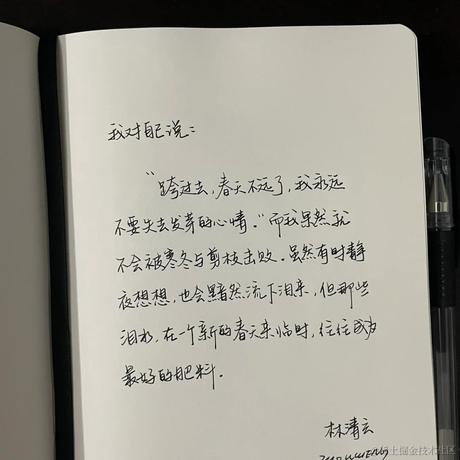 我对自己说：
“跨过去，春天不远了，我永远
不要失去发芽的心情。”而我果然就
不会被寒冬与剪枝击败。虽然有时静
夜想想，也会黯然流下泪来，但那些
泪水，在一个新的春天来临时，往往成为
最好的肥料。
林清玄
@稀土掘金技术社区